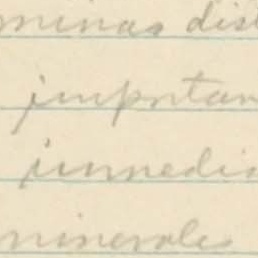 minas dist
importan
inmedia
minerales